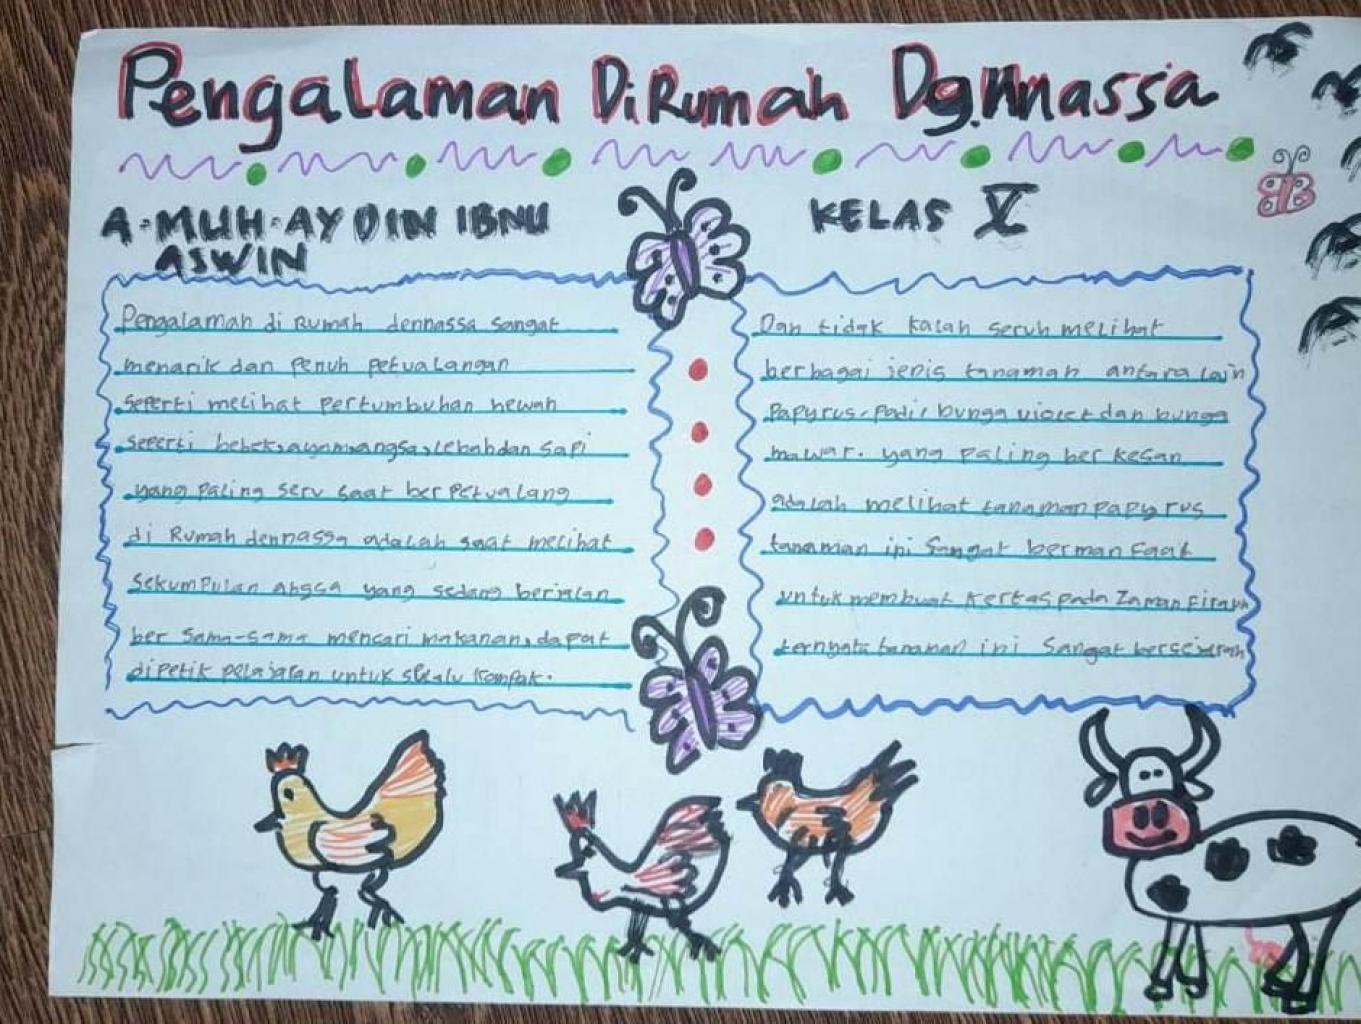 Pengalaman Di Rumah Dgnnassa
A. MUH. AYDIN IBNU
ASWIN
KELAS V
Pengalaman di Rumah dennassa sangat
menarik dan penuh petualangan
seperti melihat pertumbuhan hewan
seperti bebek, ayam, angsa, lebah dan sapi
yang paling seru saat ber petualang
di Rumah dennassa adalah saat melihat
sekumpulan angsa yang sedang berjalan
ber sama-sama mencari makanan, dapat
dipetik pelajaran untuk selalu kompak.
Dan tidak kalah seruh melihat
berbagai jenis tanaman antara lain
Papyrus, padi, bunga violet dan bunga
mawar. yang paling ber kesan
adalah melihat tanaman papyrus
tanaman ini sangat bermanfaat
untuk membuat kertas pada zaman firaun
ternyata tanaman ini sangat bersejarah